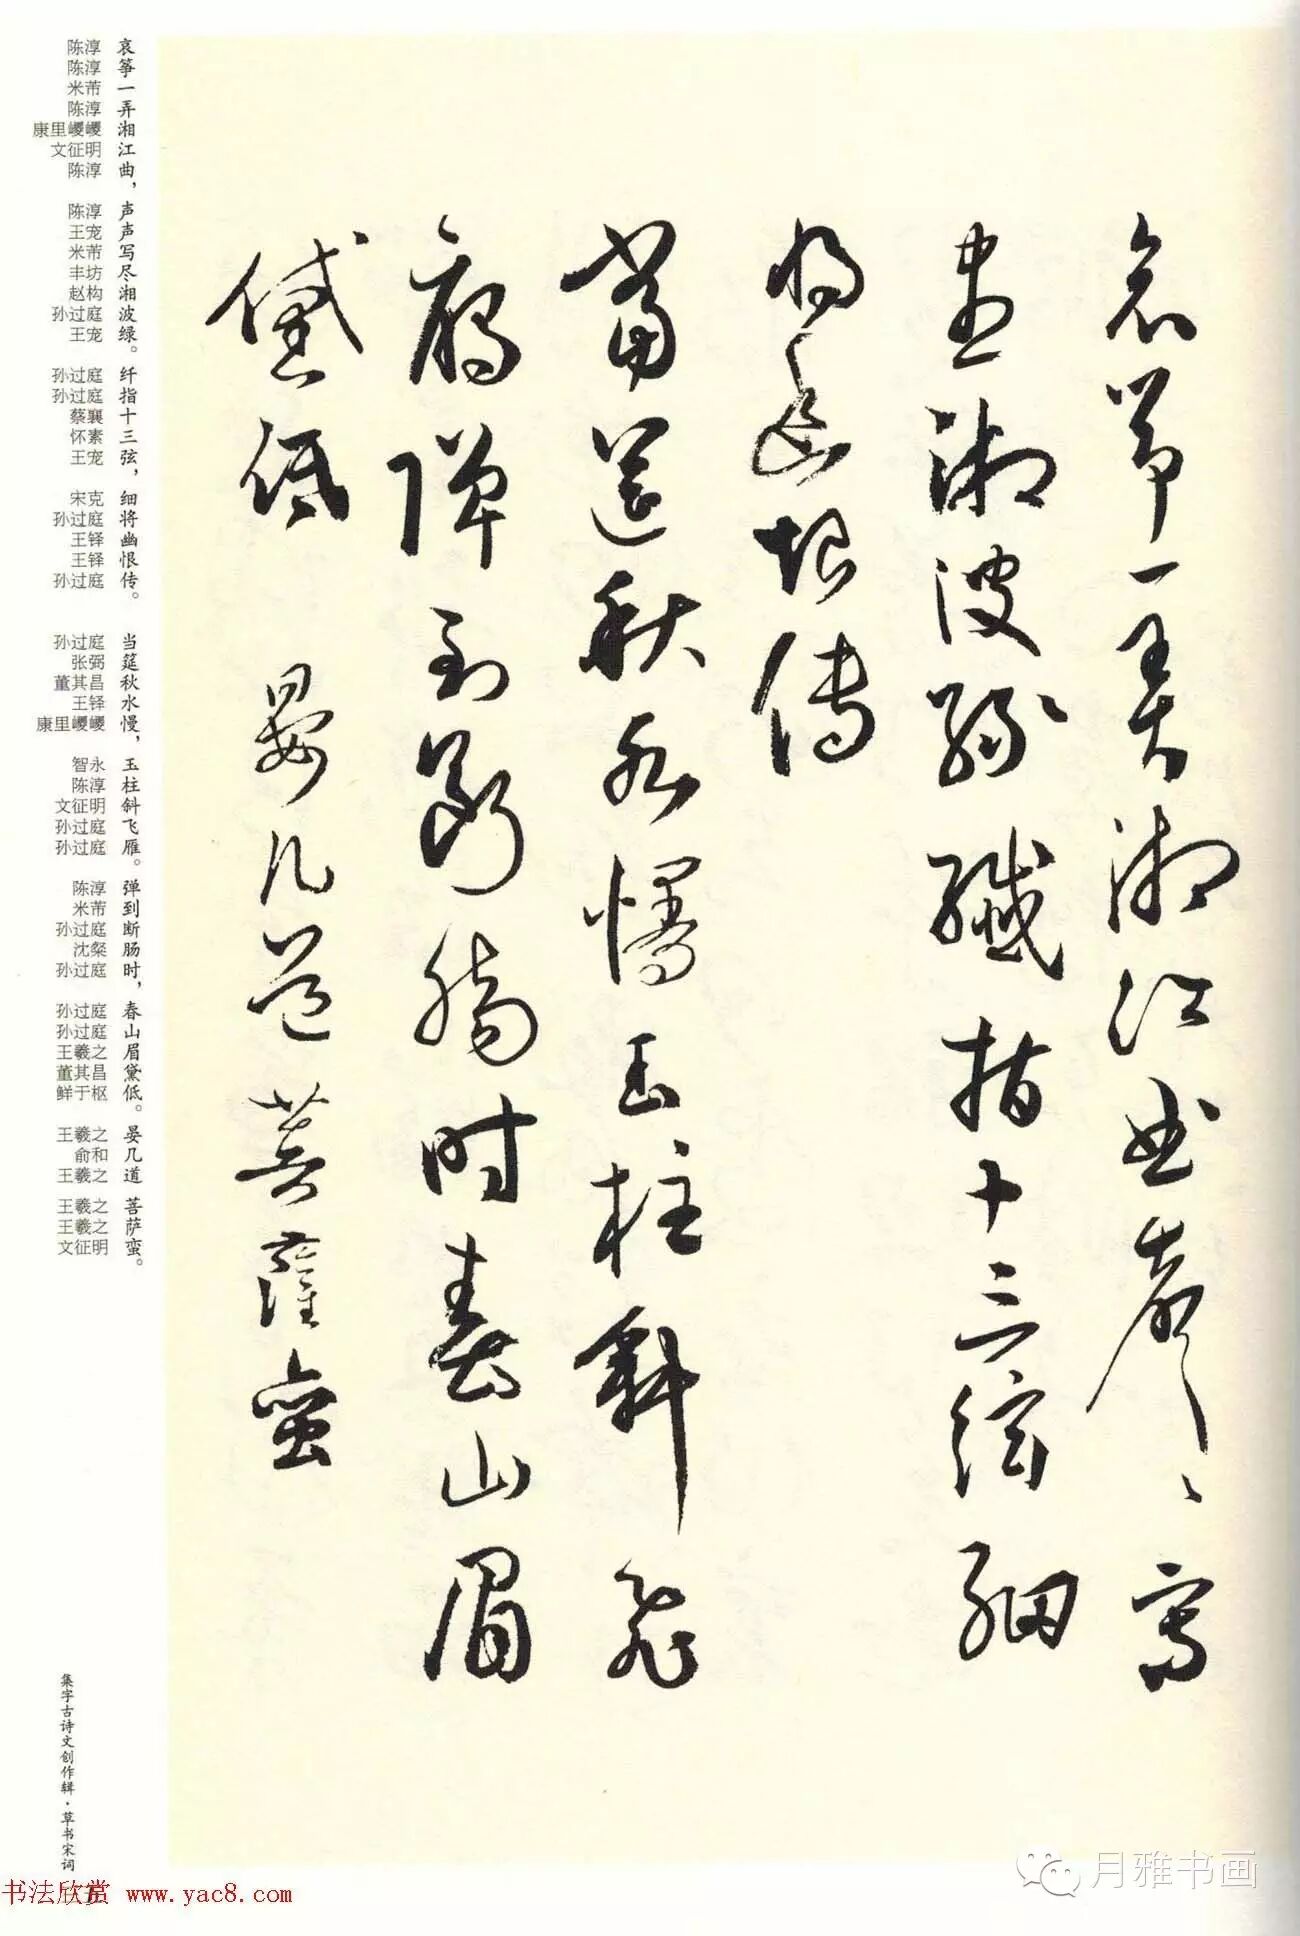 哀筝一弄湘江曲声、写
尽湘波绿纖指十三弦细
将幽恨传
當筵秋水慢玉柱斜飛
雁彈到斷腸時春山眉
黛低 晏几道菩薩蠻
陈淳 哀
陈淳 筝
米芾 一
陈淳 弄
康里巎巎 湘
文征明 江
陈淳 曲，
陈淳 声
王宠 声
米芾 写
丰坊 尽
赵构 湘
孙过庭 波
王宠 绿。
孙过庭 纤
孙过庭 指
蔡襄 十
怀素 三
王宠 弦，
宋克 细
孙过庭 将
王铎 幽
王铎 恨
孙过庭 传。
孙过庭 当
张弼 筵
董其昌 秋
王铎 水
康里巎巎 慢，
智永 玉
陈淳 柱
文征明 斜
孙过庭 飞
孙过庭 雁。
陈淳 弹
米芾 到
孙过庭 断
沈粲 肠
孙过庭 时，
孙过庭 春
孙过庭 山
王羲之 眉
董其昌 黛
鲜于枢 低。
王羲之 晏
俞和 几
王羲之 道
王羲之 菩
王羲之 萨
文征明 蛮。
集字古诗文创作辑·草书宋词
书法欣赏 www.yac8.com
月雅书画